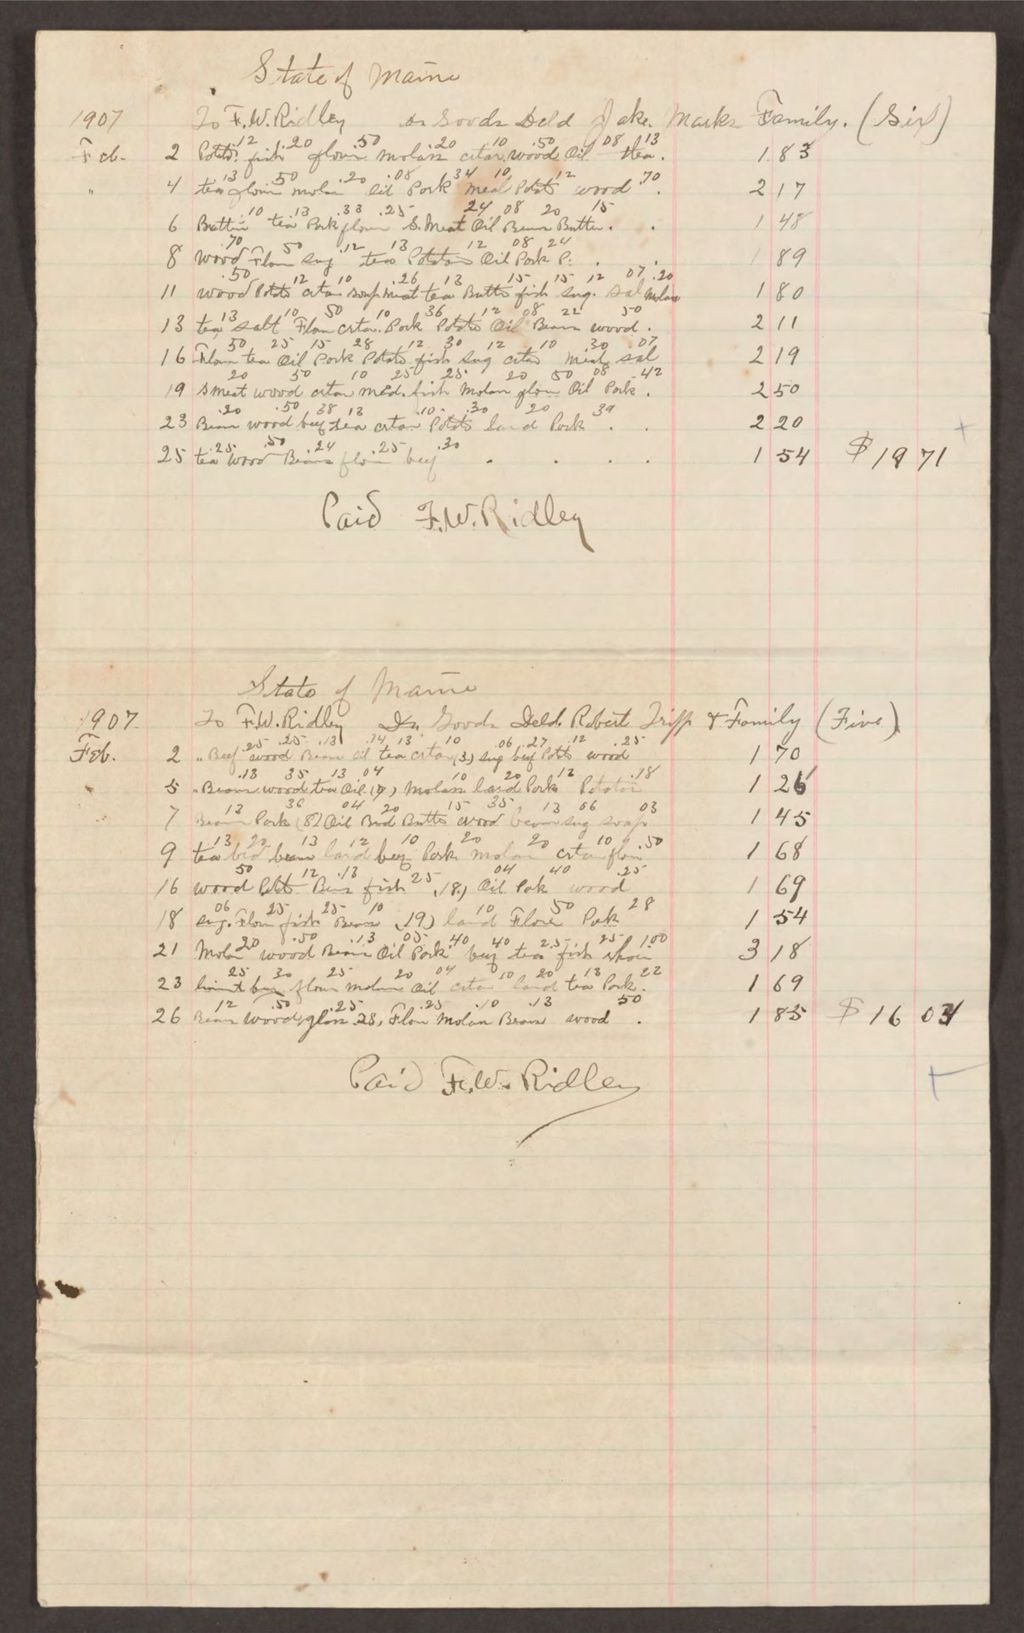 State of Maine
1907 To F.W. Ridley Dr Goods Deld Jake Marks Family. (Six)
.12 .20 .50 .20 10 .50 .08 .13
Feb. 2 Potto. fish flour molass crtan wood Oil tea. 1 83
.13 50 .20 .08 34 10 12 .70
" 4 tea flour molan Oil Pork meal Potts wood . 2 17
.10 13 .33 .25 24 08 20 15
6 Buttin tea Pork flour S. Meat Oil Beans Butter . . 1 48
70 50 .12 13 12 08 24
8 wood Flour sug tea Potatos Oil Pork P. . . 1 89
.50 12 10 .26 13 15 15 12 07 .20
11 wood Potts crtan soap meat tea Butts fish sug. sal molan 1 80
13 10 50 10 36 12 08 22 50
13 tea salt Flour crtan. Pork Potats Oil Beans wood . 2 11
50 25 15 28 12 30 12 10 30 07
16 Flour tea Oil Pork Potats fish sug crtan meat sal 2 19
20 50 10 25 25 20 50 08 42
19 Smeat wood crtan med. fish Molan flour Oil Pork . 2 50
.20 .50 38 12 .10 .30 20 39
23 Bean wood beef tea crtan Potats lard Pork . . 2 20
.25 .50 .24 .25 .30
25 tea wood Beans flour beef . . . . 1 54 $19 71
Paid F.W. Ridley
State of Maine
1907 To F.W. Ridley Dr. Goods Deld. Robert Tripp & Family (Five)
.25 .25 .13 .14 13 10 .06 .27 .12 .25
Feb. 2 " Beef wood Bean oil tea crtan (3) sug beef Potts wood 1 70
.13 35 13 .04 10 20 12 .18
5 " Beans wood tea Oil (7) Molass lard Pork Potatos 1 26
13 36 04 20 15 35 13 06 03
7 Beans Pork (8) Oil Brd Butts wood beans sug soap 1 45
13 20 13 12 10 20 20 10 .50
9 tea brd bean lard beef Pork molan crtan flour 1 68
50 12 .13 25 04 40 .25
16 wood Pott Bens fish , 18, Oil Pok wood 1 69
06 25 25 10 10 50 28
18 sug. Flour fish Beans , 19) lard Flour Pork 1 54
20 .50 .13 05 40 40 25 25 1.00
21 Molan wood Bean Oil Pork beef tea fish shoes 3 18
25 30 25 20 04 10 20 13 22
23 beef flour molan Oil crtan lard tea Pork . 1 69
12 .50 .25 .25 .10 .13 50
26 Beans wood, flour 28, Flour Molan Beans wood . 1 85 $16 04
Paid F.W. Ridley